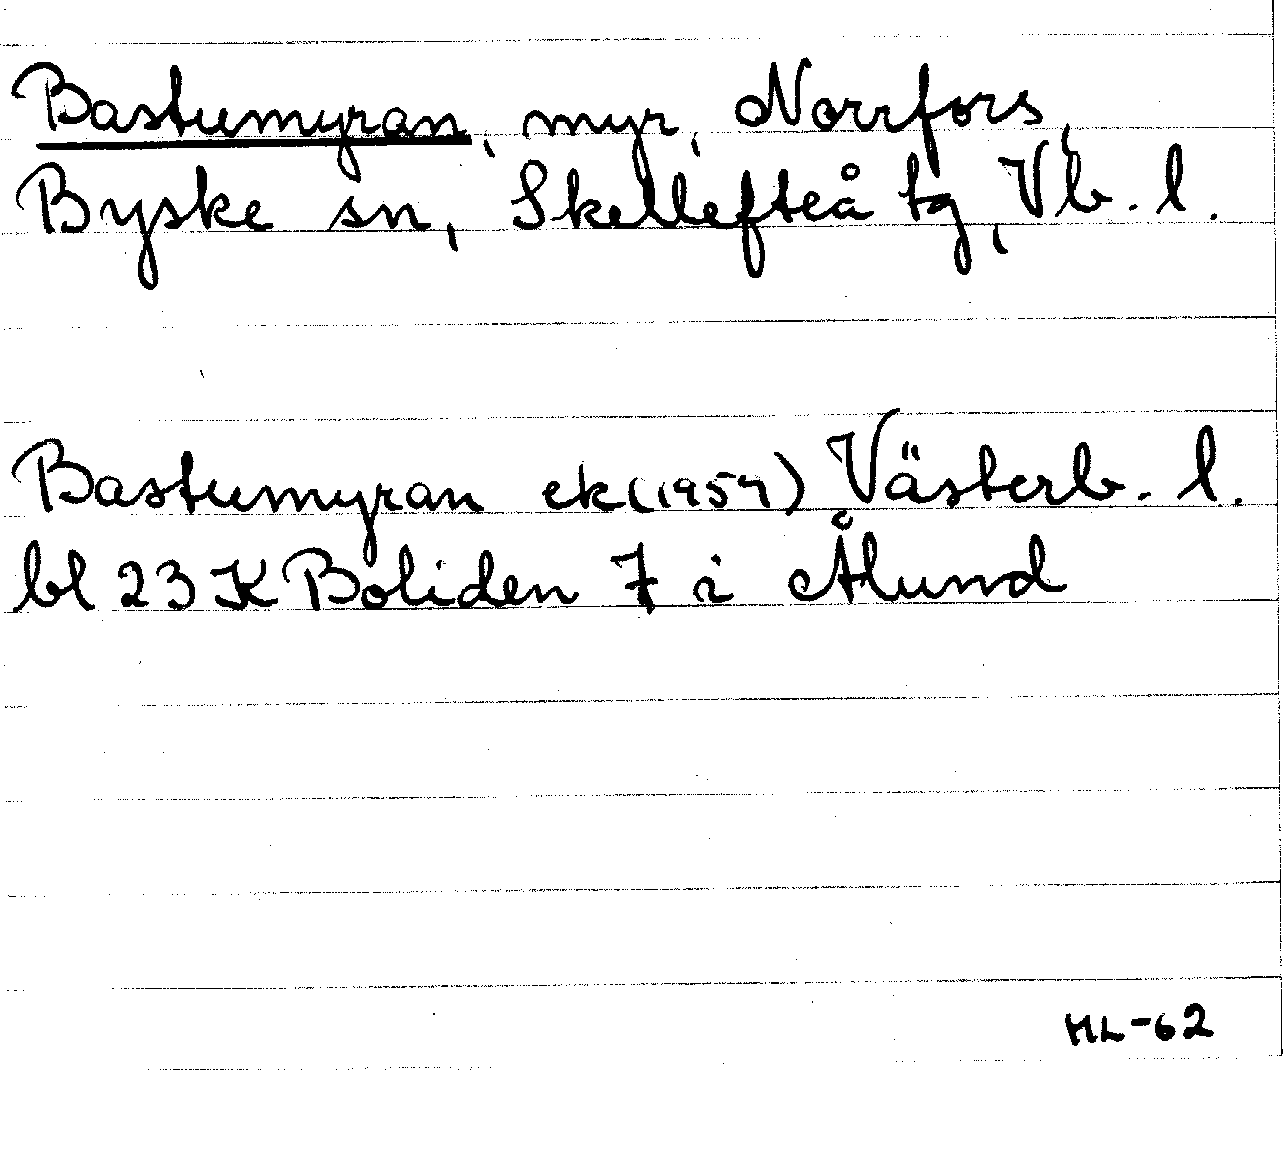 Bastumyran, myr, Norrfors,
Byske sn, Skellefteå tg, Vb. l.
Bastumyran ek (1959) Västerb. l.
bl 23 K Boliden 7 i Ålund
HL-62